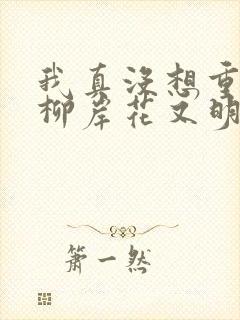 我真没想重
柳岸花又明
萧一然